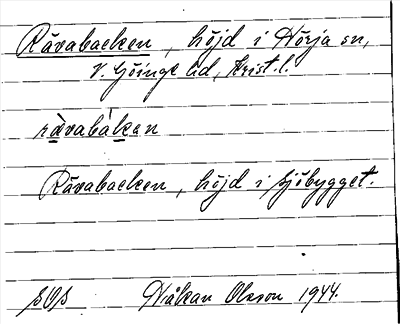 Rävabacken, höjd i Nörja sn,
V. Göinge hd, Krist. l.
rävabakan
Rävabacken, höjd i Sjöbygget.
SOS Håkan Olsson 1944.